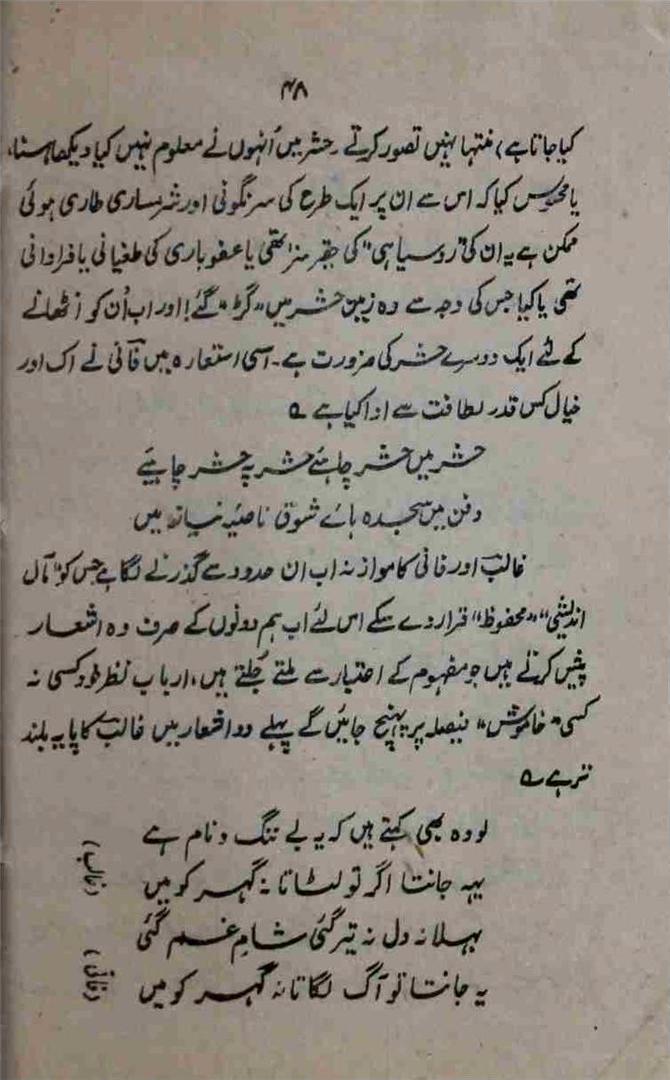 ۴۸
کیا جاتا ہے) منتہا نہیں تصور کرتے۔ حشر میں اُنہوں نے معلوم نہیں کیا دیکھا، سنا،
یا محسوس کیا کہ اس سے ان پر ایک طرح کی سرنگونی اور شرمساری طاری ہوئی
ممکن ہے یہ ان کی "روسیاہی" کی حقیر سزا تھی یا عفو باری کی طغیانی یا فراوانی
تھی یا کیا جس کی وجہ سے وہ زمین حشر میں "گڑ" گئے! اور اب اُن کو اٹھانے
کے لئے ایک دوسرے حشر کی ضرورت ہے۔ اسی استعارہ میں فانی نے اک اور
خیال کس قدر لطافت سے ادا کیا ہے ؎
حشر میں حشر چاہئے حشر پہ حشر چاہیے
دفن ہیں سجدہ ہائے شوق ناصیۂ نیاز میں
غالب اور فانی کا موازنہ اب ان حدود سے گذرنے لگا ہے جس کو "مآل
اندیشی" "محفوظ" قرار دے سکے اس لئے اب ہم دونوں کے صرف وہ اشعار
پیش کرتے ہیں جو مفہوم کے اعتبار سے ملتے جُلتے ہیں، ارباب نظر خود کسی نہ
کسی "خاموش" فیصلہ پر پہنچ جائیں گے پہلے دو اشعار میں غالب کا پایہ بلند
تر ہے ؎
لو وہ بھی کہتے ہیں کہ یہ بے ننگ و نام ہے
یہہ جانتا اگر تو لٹاتا نہ گہر کو میں (غالب)
بہلا نہ دل نہ تیرگئی شامِ غم گئی
یہ جانتا تو آگ لگاتا نہ گہر کو میں (فانی)